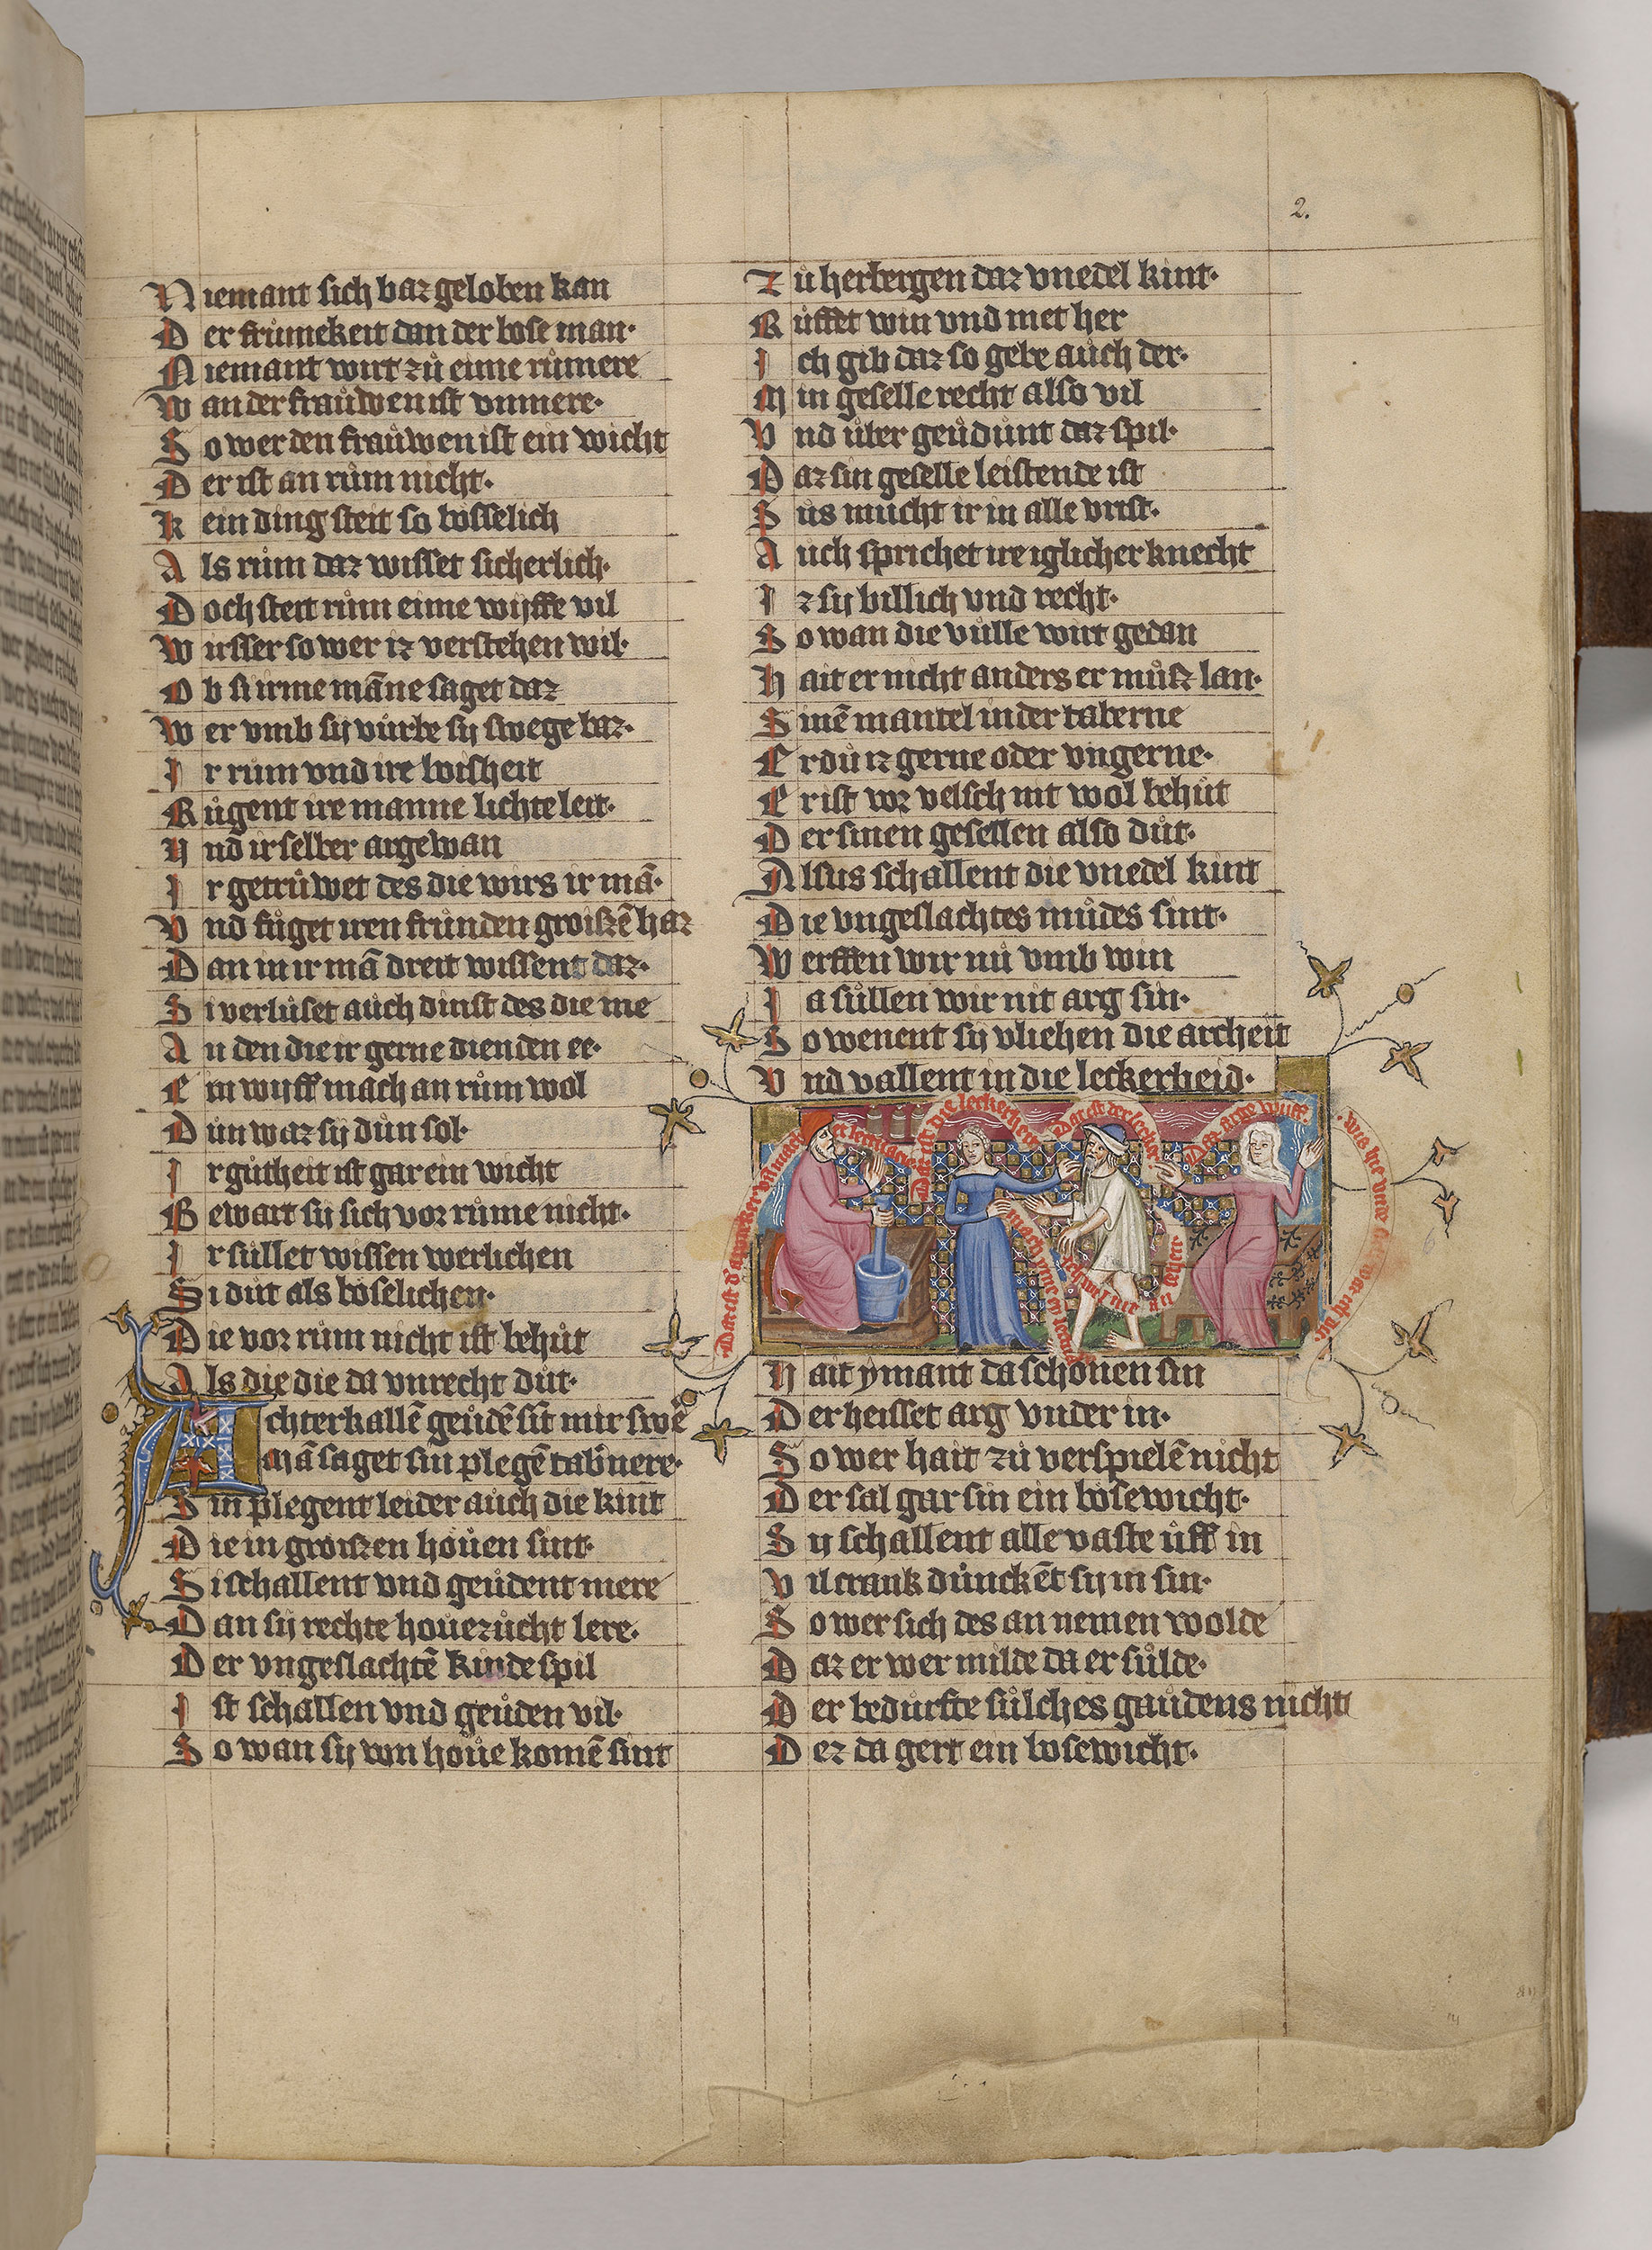 2.
Niemant sich baz geloben kan
Der frůmekeit dan der bose man·
Niemant wirt zů eime růmere
Wan der fraůwen ist vnmere·
So wer den fraůwen ist ein wicht
Der ist an rům nicht·
Kein ding steit so bosselich
Als rům daz wisset sicherlich·
Doch steit rům eime wijffe vil
Wirsser so wer iz verstehen wil·
Ob si irme mãne saget daz
Wer vmb sij vůrbe sij swege baz·
Ir rům vnd ire boisheit
Růgent ire manne lichte leit·
Vnd ir selber argewan
Ir getrůwet des die wirs ir mã·
Vnd fůget iren frůnden groißẽ haz
Dan in ir mã dreit wissent daz·
Si verlůset aůch dinst des die me
An den die ir gerne dienden ee·
Ein wijff mach an rům wol
Důn waz sij důn sol·
Ir gůtheit ist gar ein wicht
Bewart sij sich vor růme nicht·
Ir sůllet wissen werlichen
Si důt als boselichen·
Die vor rům nicht ist behůt
Als die die da vnrecht důt·
Achterkallẽ geůdẽ sĩt mir swẽ
Mã saget sin plegẽ tab̃nere·
Sin plegent leider aůch die kint
Die in groißen hoůen sint·
Si schallent vnd geůdent mere
Dan sij rechte houezůcht lere·
Der vngeslachtẽ kinde spil
Ist schallen vnd geůden vil·
So wan sij von hoůe komẽ sint
Zů herbergen daz vnedel kint·
Růffet win vnd met her
Ich gib daz so gebe aůch der·
Min geselle recht also vil
Vnd ůber geůdunt daz spil·
Daz sin geselle leistende ist
Sůs mucht ir in alle vrist·
Auch sprichet ire iglicher knecht
Iz sij billich vnd recht·
So wan die vůlle wirt gedan
Hait er nicht anders er můß lan·
Sinẽ mantel in der taberne
Er dů iz gerne oder vngerne·
Er ist vor velsch nit wol behůt
Der sinen gesellen also důt·
Alsus schallent die vnedel kint
Die vngeslachtes můdes sint·
Werffen wir nů vmb win
Ja sůllen wir nit arg sin·
So wenent sij vliehen die archeit
Vnd vallent in die leckerheid·
Daz ist der lecker
Daz arge wijff
Hait ymant da schonen sin
Der heisset arg vnder in·
So wer hait zů verspielẽ nicht
Der sal gar sin ein bosewicht·
Sij schallent alle vaste ůff in
Vil crank důnckẽt sij in sin·
So wer sich des an nemen wolde
Daz er wer milde da er sůlde·
Der bedůrfte sůlches gaůdens nicht
Dez da gert ein bosewicht·